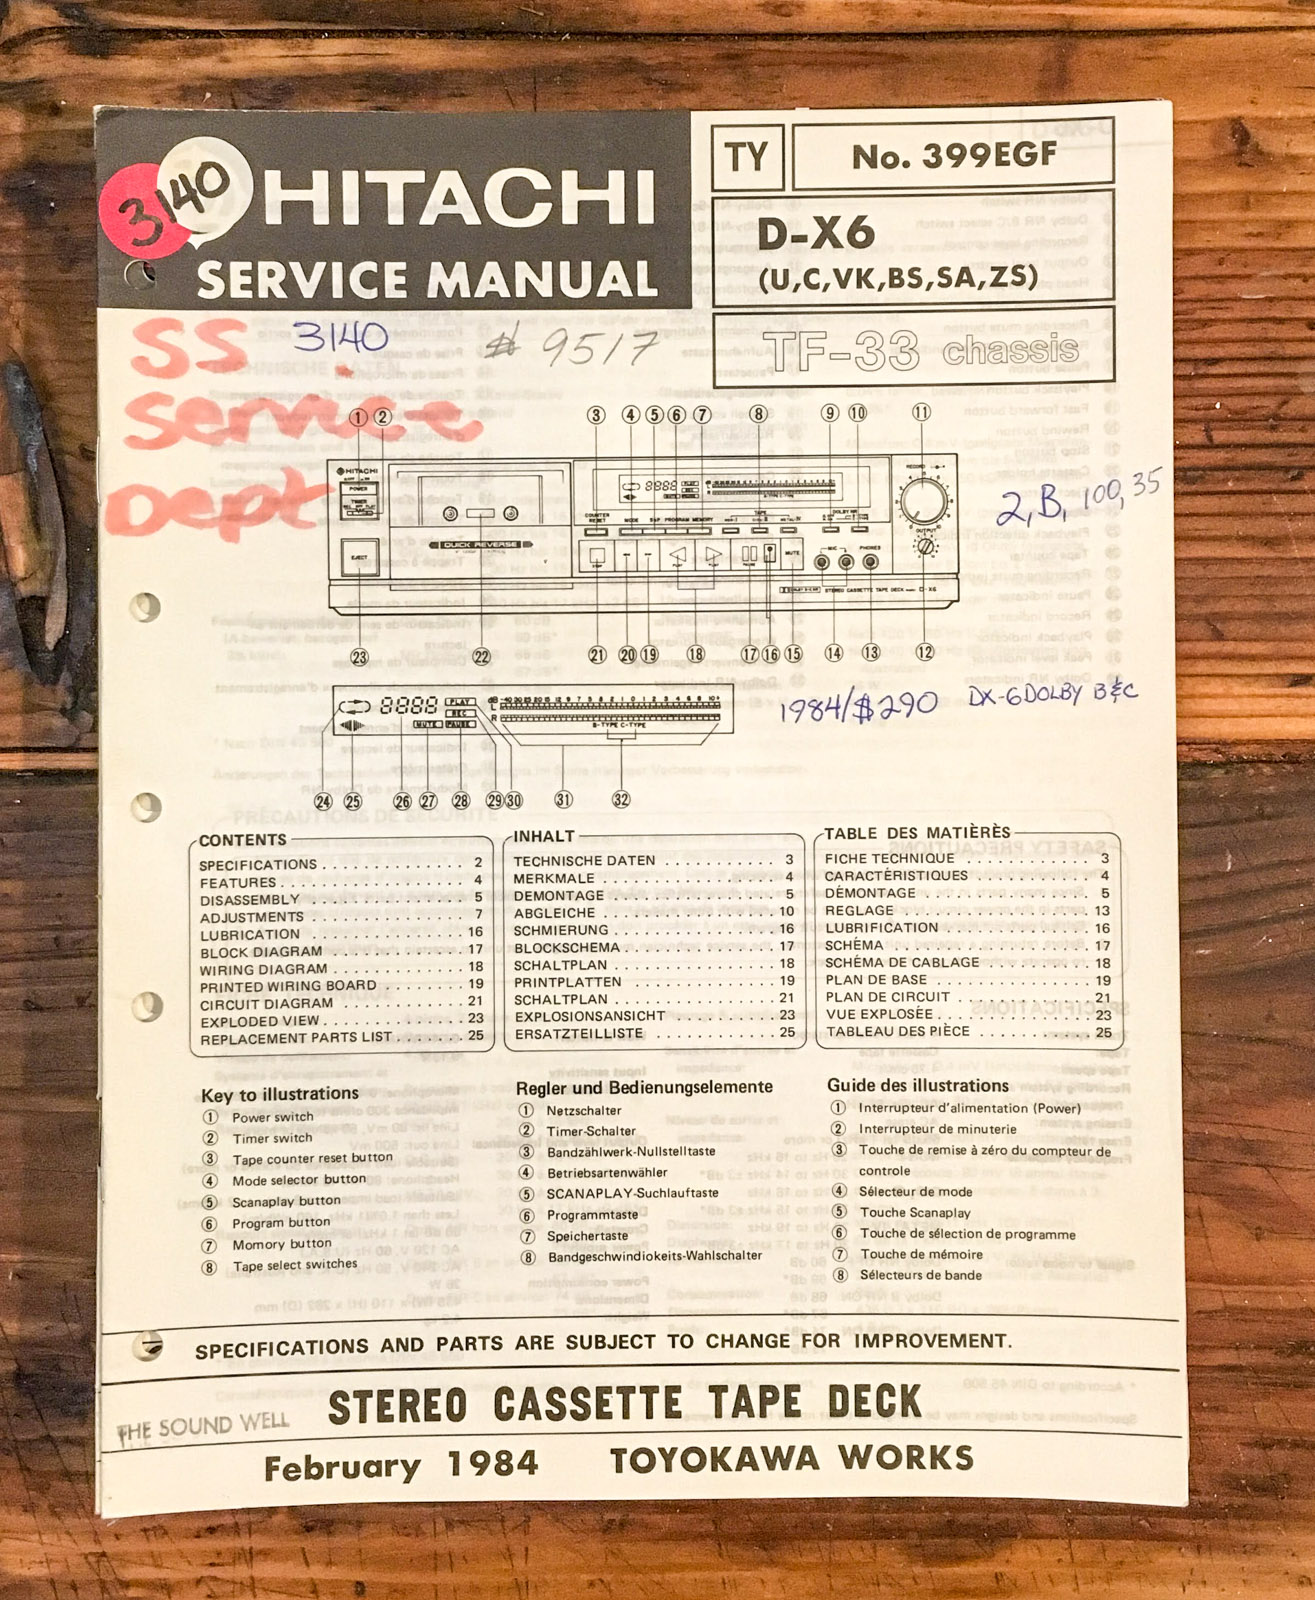 3140
HITACHI
SERVICE MANUAL
TY
No. 399EGF
D-X6
(U,C,VK,BS,SA,ZS)
TF-33 chassis
SS
Service
Dept
3140
# 9517
① ② ③ ④ ⑤ ⑥ ⑦ ⑧ ⑨ ⑩ ⑪
HITACHI
POWER
TIMER
EJECT
QUICK REVERSE
COUNTER RESET
MODE
PROGRAM MEMORY
TAPE
DOLBY NR
RECORD
OUTPUT
MUTE
MIC
PHONES
STEREO CASSETTE TAPE DECK D-X6
2, B, 100, 35
㉓ ㉒ ㉑ ⑳ ⑲ ⑱ ⑰ ⑯ ⑮ ⑭ ⑬ ⑫
PLAY
REC
MUTE PAUSE
dB
L
R
B-TYPE C-TYPE
1984/$290 DX-6 DOLBY B&C
㉔ ㉕ ㉖ ㉗ ㉘ ㉙ ㉚ ㉛ ㉜
CONTENTS
SPECIFICATIONS . . . . . . . . . . . . 2
FEATURES . . . . . . . . . . . . 4
DISASSEMBLY . . . . . . . . . . . . 5
ADJUSTMENTS . . . . . . . . . . . . 7
LUBRICATION . . . . . . . . . . . . 16
BLOCK DIAGRAM . . . . . . . . . . . . 17
WIRING DIAGRAM . . . . . . . . . . . . 18
PRINTED WIRING BOARD . . . . . . . . 19
CIRCUIT DIAGRAM . . . . . . . . . . . . 21
EXPLODED VIEW . . . . . . . . . . . . 23
REPLACEMENT PARTS LIST . . . . . . . 25
INHALT
TECHNISCHE DATEN . . . . . . . . . . 3
MERKMALE . . . . . . . . . . . . 4
DEMONTAGE . . . . . . . . . . . . 5
ABGLEICHE . . . . . . . . . . . . 10
SCHMIERUNG . . . . . . . . . . . . 16
BLOCKSCHEMA . . . . . . . . . . . . 17
SCHALTPLAN . . . . . . . . . . . . 18
PRINTPLATTEN . . . . . . . . . . . . 19
SCHALTPLAN . . . . . . . . . . . . 21
EXPLOSIONSANSICHT . . . . . . . . . 23
ERSATZTEILLISTE . . . . . . . . . . 25
TABLE DES MATIÈRÈS
FICHE TECHNIQUE . . . . . . . . . . 3
CARACTÉRISTIQUES . . . . . . . . . . 4
DÉMONTAGE . . . . . . . . . . . . 5
REGLAGE . . . . . . . . . . . . 13
LUBRIFICATION . . . . . . . . . . . . 16
SCHÉMA . . . . . . . . . . . . 17
SCHÉMA DE CABLAGE . . . . . . . . . 18
PLAN DE BASE . . . . . . . . . . . . 19
PLAN DE CIRCUIT . . . . . . . . . . 21
VUE EXPLOSÉE . . . . . . . . . . . . 23
TABLEAU DES PIÈCE . . . . . . . . . 25
Key to illustrations
① Power switch
② Timer switch
③ Tape counter reset button
④ Mode selector button
⑤ Scanaplay button
⑥ Program button
⑦ Momory button
⑧ Tape select switches
Regler und Bedienungselemente
① Netzschalter
② Timer-Schalter
③ Bandzählwerk-Nullstelltaste
④ Betriebsartenwähler
⑤ SCANAPLAY-Suchlauftaste
⑥ Programmtaste
⑦ Speichertaste
⑧ Bandgeschwindiokeits-Wahlschalter
Guide des illustrations
① Interrupteur d'alimentation (Power)
② Interrupteur de minuterie
③ Touche de remise à zéro du compteur de
controle
④ Sélecteur de mode
⑤ Touche Scanaplay
⑥ Touche de sélection de programme
⑦ Touche de mémoire
⑧ Sélecteurs de bande
SPECIFICATIONS AND PARTS ARE SUBJECT TO CHANGE FOR IMPROVEMENT.
THE SOUND WELL
STEREO CASSETTE TAPE DECK
February 1984 TOYOKAWA WORKS